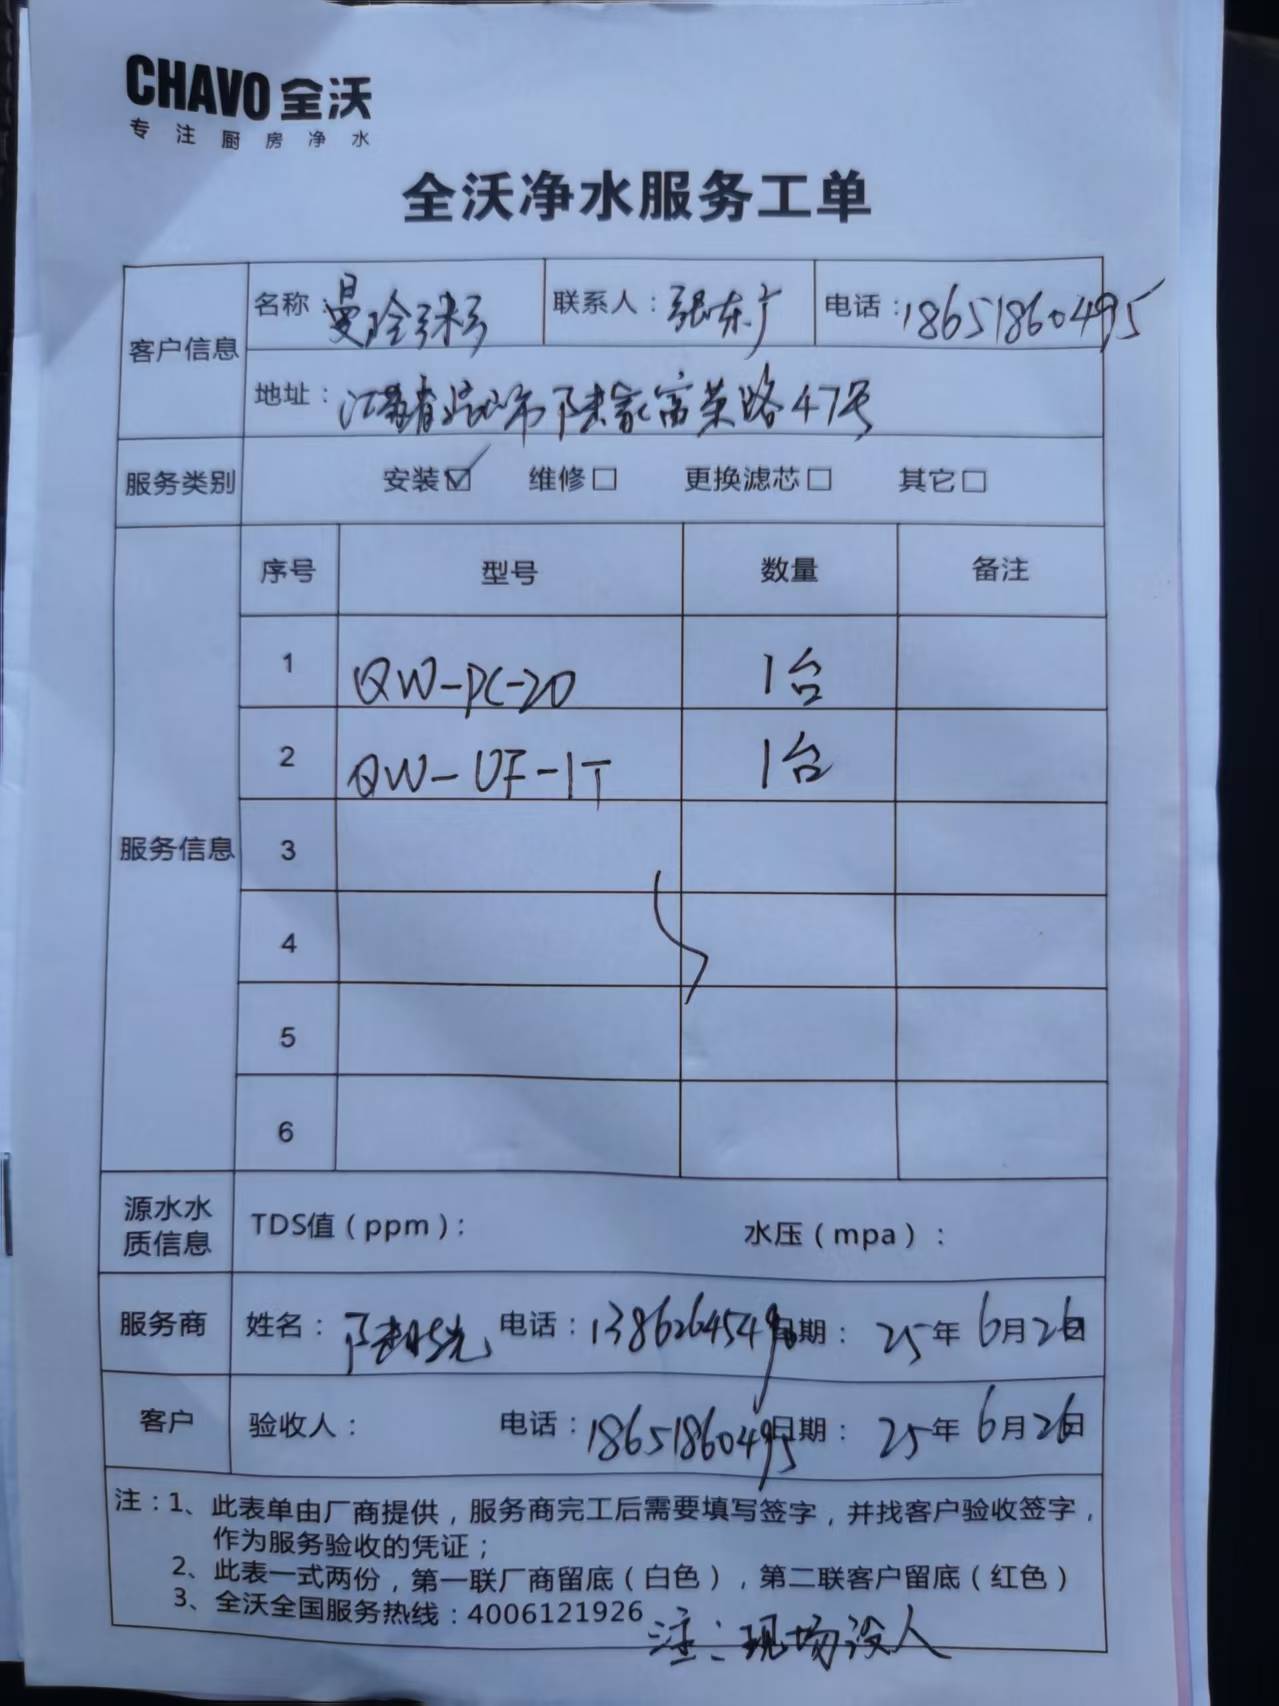 CHAVO 全沃
专注厨房净水
全沃净水服务工单
客户信息
名称：曼玲粥 联系人：张东广 电话：18651860495
地址：江苏省昆山市陆家富荣路47号
服务类别 安装☑ 维修□ 更换滤芯□ 其它□
服务信息
序号 型号 数量 备注
1 QW-PC-20 1台
2 QW-UF-1T 1台
3
4
5
6
源水水质信息 TDS值（ppm）： 水压（mpa）：
服务商 姓名： 电话：13862645490 日期：25年6月26日
客户 验收人： 电话：18651860495 日期：25年6月26日
注：1、此表单由厂商提供，服务商完工后需要填写签字，并找客户验收签字，
作为服务验收的凭证；
2、此表一式两份，第一联厂商留底（白色），第二联客户留底（红色）
3、全沃全国服务热线：4006121926
注：现场没人